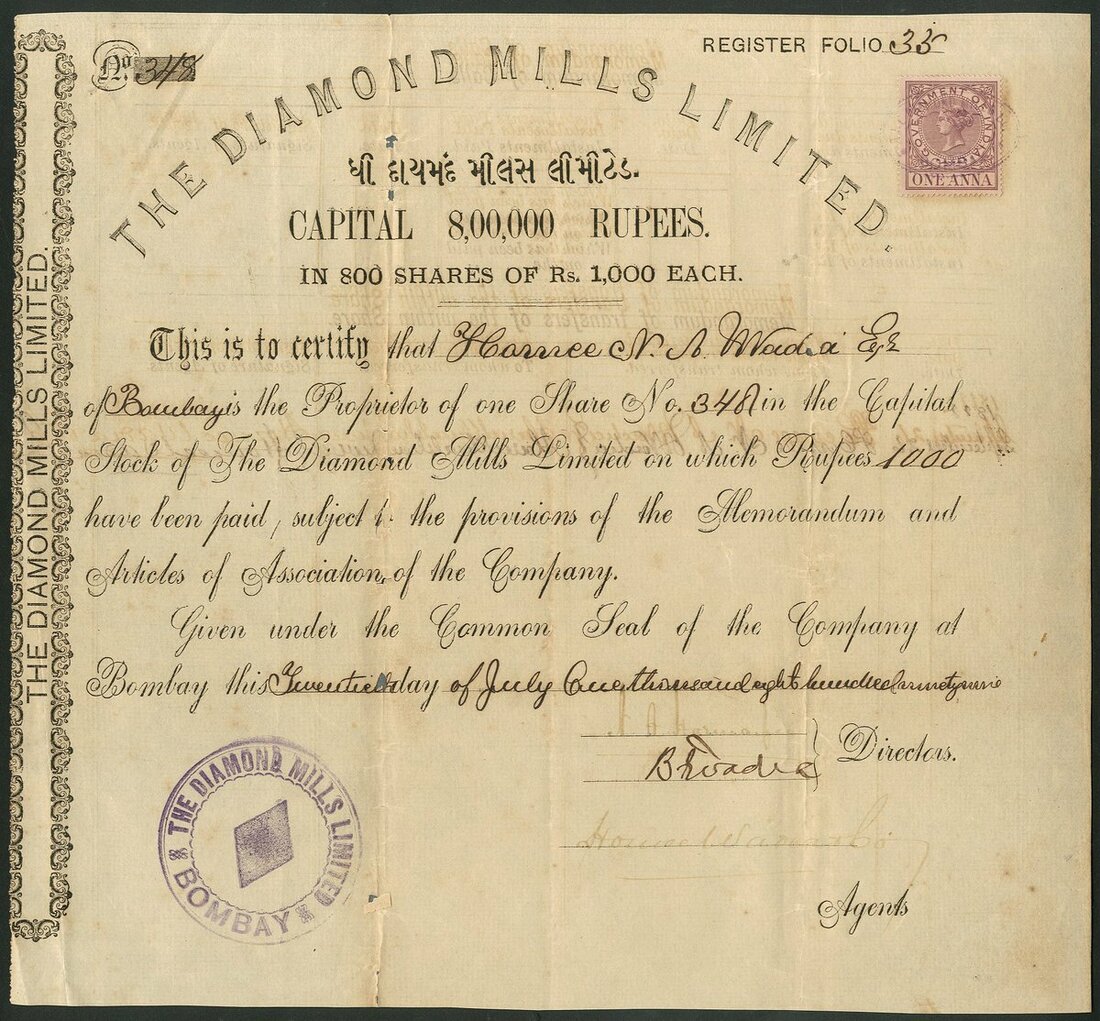 No. 348
REGISTER FOLIO 35
THE DIAMOND MILLS LIMITED.
GOVERNMENT OF INDIA
ONE ANNA
ધી દાયમંદ મીલસ લીમીટેડ.
CAPITAL 8,00,000 RUPEES.
IN 800 SHARES OF Rs. 1,000 EACH.
This is to certify that Hormee N. A. Wadia Esq
of Bombay is the Proprietor of one Share No. 348 in the Capital
Stock of The Diamond Mills Limited on which Rupees 1000
have been paid, subject t the provisions of the Memorandum and
Articles of Association, of the Company.
Given under the Common Seal of the Company at
Bombay this Twentieth day of July One thousand eight hundred ninety nine
Directors.
Agents
THE DIAMOND MILLS LIMITED
BOMBAY
THE DIAMOND MILLS LIMITED.